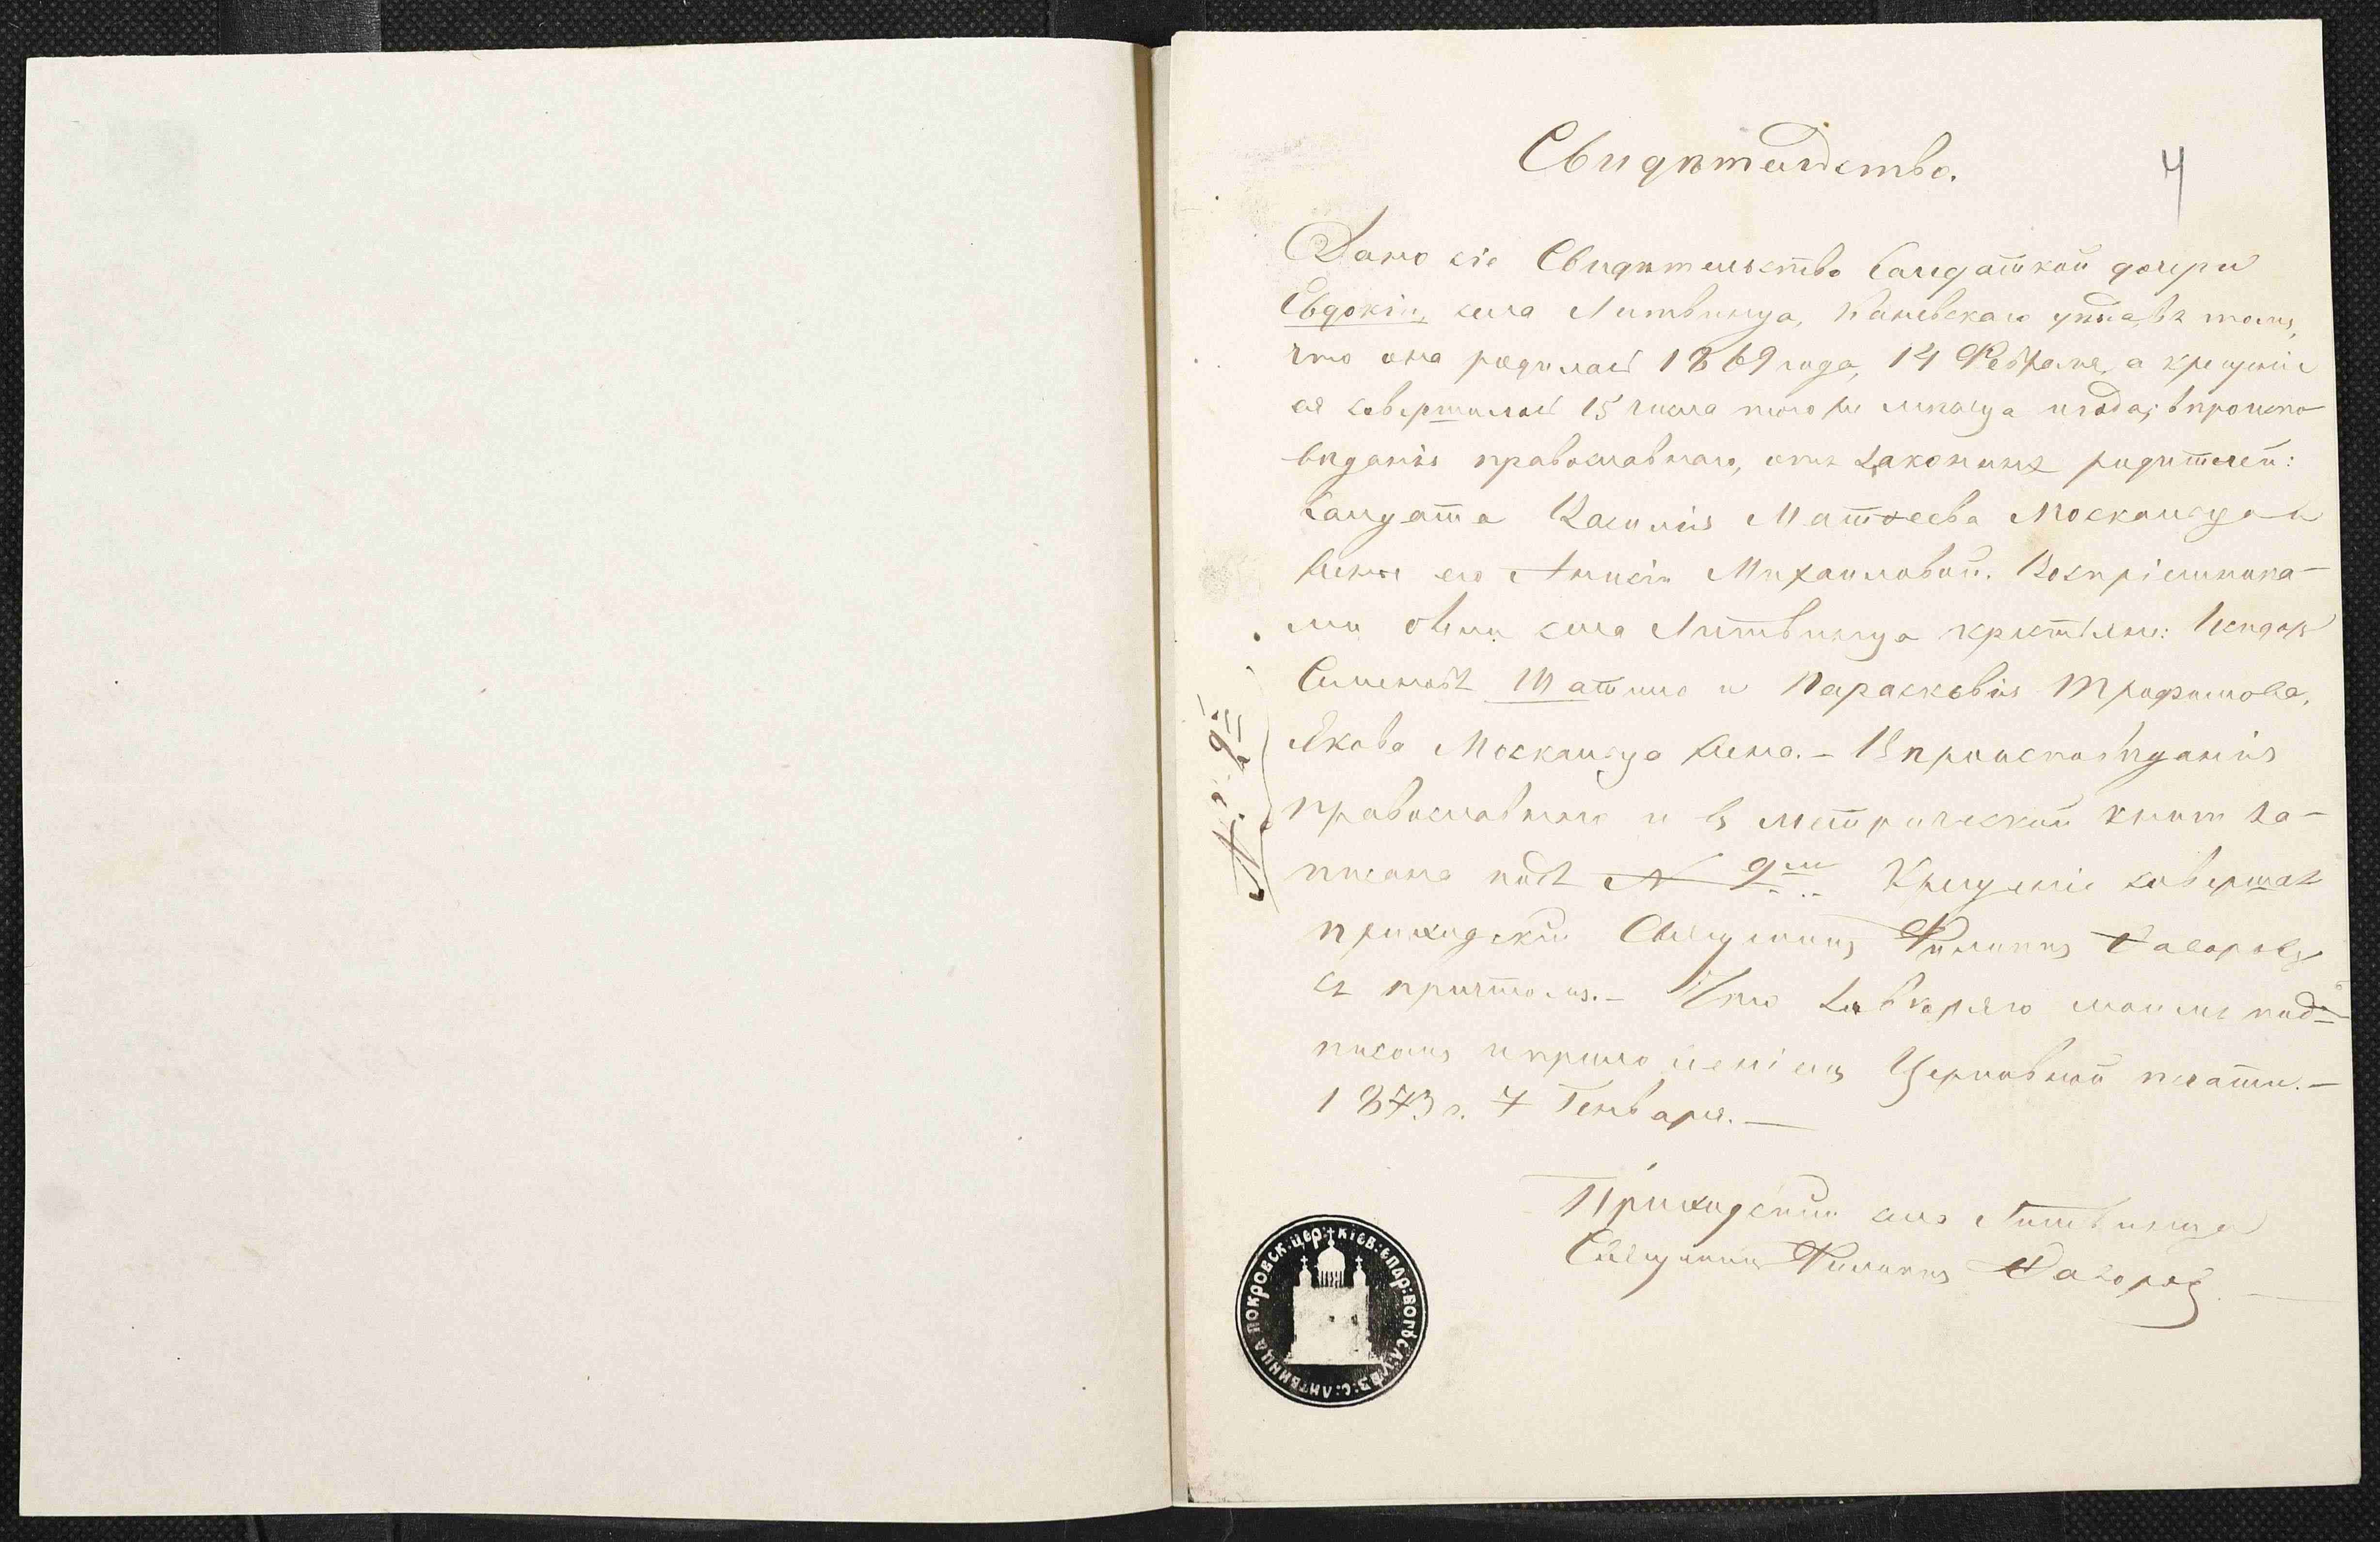 Свидѣтельство.
4
Дано сіе Свидѣтельство Салдатской дочери
Евдокіи, села Литвинца, Каневскаго уѣзда, въ томъ,
что она родилась 1869 года, 14 Февраля, а крещеніе
ея совершилось 15 числа того же мѣсяца и года; вѣроиспо-
вѣданія православнаго, отъ законныхъ родителей:
Салдата Василія Матѳеева Москальца и
жены его Анисіи Михаиловой. Воспріемника-
ми были села Литвинца крестьяне: Исидоръ
Семеновъ и Параскевія Трофимова,
Якова Москальца жена. – Вѣроисповѣданія
православнаго и въ метрической книгѣ за-
писана подъ № 9мъ Крещеніе совершалъ
приходскій Священникъ Филиппъ
съ причтомъ. – Что завѣряю моимъ под-
писомъ и приложеніемъ Церковной печати. –
1873 г. 7 Генваря. –
№ 9й
Приходскій села Литвинца
Священникъ Филиппъ
ПОКРОВСК: ЦЕР: КІЕВ: ЕПАР: БОГѸСЛ: УѢЗ: С: ЛИТВИНЦА